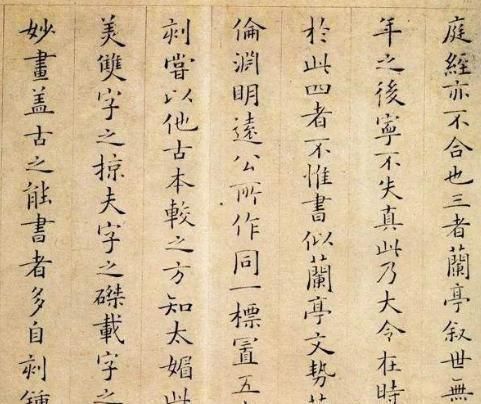 庭經亦不合也三者蘭亭叙世無
年之後寧不失真此乃大令在時
於此四者不惟書似蘭亭文勢
倫淵明遠公所作同一標置五
刻嘗以他古本較之方知太媚此
美雙字之掠夫字之磔載字之
妙畫盖古之能書者多自刻鍾